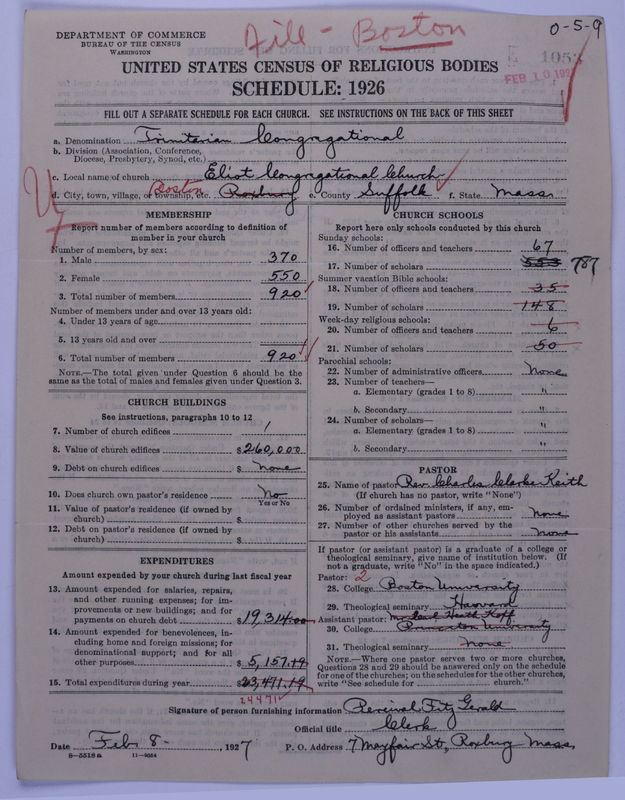 File - Boston
0-5-9
DEPARTMENT OF COMMERCE
BUREAU OF THE CENSUS
WASHINGTON
1053
FEB 10 192
UNITED STATES CENSUS OF RELIGIOUS BODIES
SCHEDULE: 1926
FILL OUT A SEPARATE SCHEDULE FOR EACH CHURCH. SEE INSTRUCTIONS ON THE BACK OF THIS SHEET
a. Denomination Trinitarian Congregational
b. Division (Association, Conference, Diocese, Presbytery, Synod, etc.)
c. Local name of church Eliot Congregational Church
d. City, town, village, or township, etc. Boston Roxbury e. County Suffolk f. State Mass
MEMBERSHIP
Report number of members according to definition of
member in your church
Number of members, by sex:
1. Male 370
2. Female 550
3. Total number of members 920
Number of members under and over 13 years old:
4. Under 13 years of age
5. 13 years old and over
6. Total number of members 920
NOTE.—The total given under Question 6 should be
same as the total of males and females given under Question 3.
CHURCH BUILDINGS
See instructions, paragraphs 10 to 12
7. Number of church edifices 1
8. Value of church edifices $260,000
9. Debt on church edifices $ none
10. Does church own pastor's residence No
Yes or No
11. Value of pastor's residence (if owned by
church) $
12. Debt on pastor's residence (if owned by
church) $
EXPENDITURES
Amount expended by your church during last fiscal year
13. Amount expended for salaries, repairs,
and other running expenses; for im-
provements or new buildings; and for
payments on church debt $19,314.00
14. Amount expended for benevolences, in-
cluding home and foreign missions; for
denominational support; and for all
other purposes $5,157.19
15. Total expenditures during year $23,471.19
24471
CHURCH SCHOOLS
Report here only schools conducted by this church
Sunday schools:
16. Number of officers and teachers 67
17. Number of scholars 553 787
Summer vacation Bible schools:
18. Number of officers and teachers 35
19. Number of scholars 148
Week-day religious schools:
20. Number of officers and teachers 6
21. Number of scholars 50
Parochial schools:
22. Number of administrative officers None
23. Number of teachers—
a. Elementary (grades 1 to 8) "
b. Secondary "
24. Number of scholars—
a. Elementary (grades 1 to 8) "
b. Secondary "
PASTOR
25. Name of pastor Rev. Charles Clarke Keith
(If church has no pastor, write "None")
26. Number of ordained ministers, if any, em-
ployed as assistant pastors none
27. Number of other churches served by the
pastor or his assistants none
If pastor (or assistant pastor) is a graduate of a college or
theological seminary, give name of institution below. (If
not a graduate, write "No" in the space indicated.)
Pastor: 2
28. College Boston University
29. Theological seminary Harvard
Assistant pastor:
30. College Princeton University
31. Theological seminary none
NOTE.—Where one pastor serves two or more churches,
Questions 28 and 29 should be answered only on the schedule
for one of the churches; on the schedules for the other churches,
write "See schedule for church."
Signature of person furnishing information Percival Fitz Gerald
Official title Clerk
Date Feb 8-, 1927 P. O. Address 7 Mayfair St, Roxbury Mass
8—5518a 11—9054